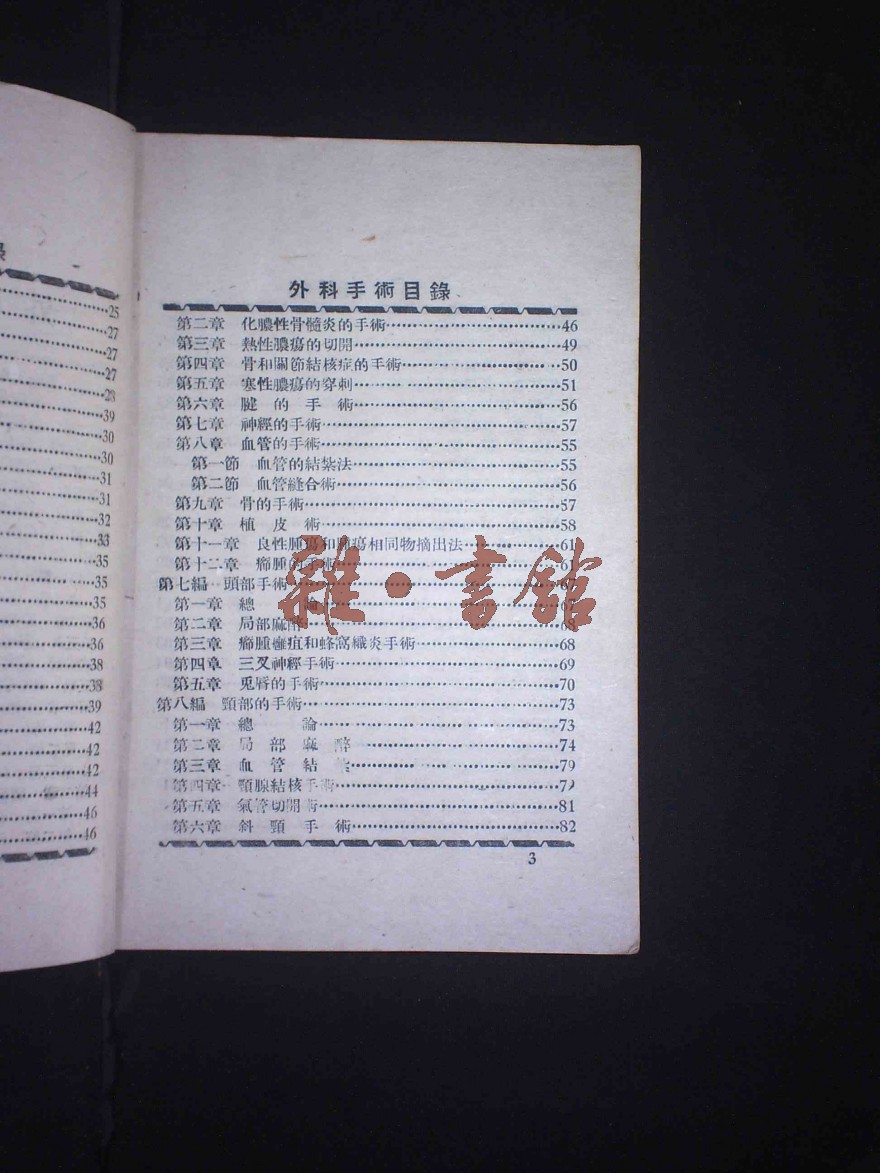 錄
25
27
27
27
28
39
30
30
31
31
32
33
35
35
35
36
36
38
38
39
42
42
42
44
46
46
外科手術目錄
第二章 化膿性骨髓炎的手術……46
第三章 熱性膿瘍的切開……49
第四章 骨和關節結核症的手術……50
第五章 寒性膿瘍的穿刺……51
第六章 腱的手術……56
第七章 神經的手術……57
第八章 血管的手術……55
第一節 血管的結紮法……55
第二節 血管縫合術……56
第九章 骨的手術……57
第十章 植皮術……58
第十一章 良性腫瘍和腫瘍相同物摘出法……61
第十二章 癤腫的手術……61
第七編 頭部手術……67
第一章 總論……67
第二章 局部麻醉……68
第三章 癤腫癰疽和蜂窩織炎手術……68
第四章 三叉神經手術……69
第五章 兎唇的手術……70
第八編 頸部的手術……73
第一章 總論……73
第二章 局部麻醉……74
第三章 血管結……79
第四章 頸腺結核手術……79
第五章 氣管切開術……81
第六章 斜頸手術……82
3
雜·書館